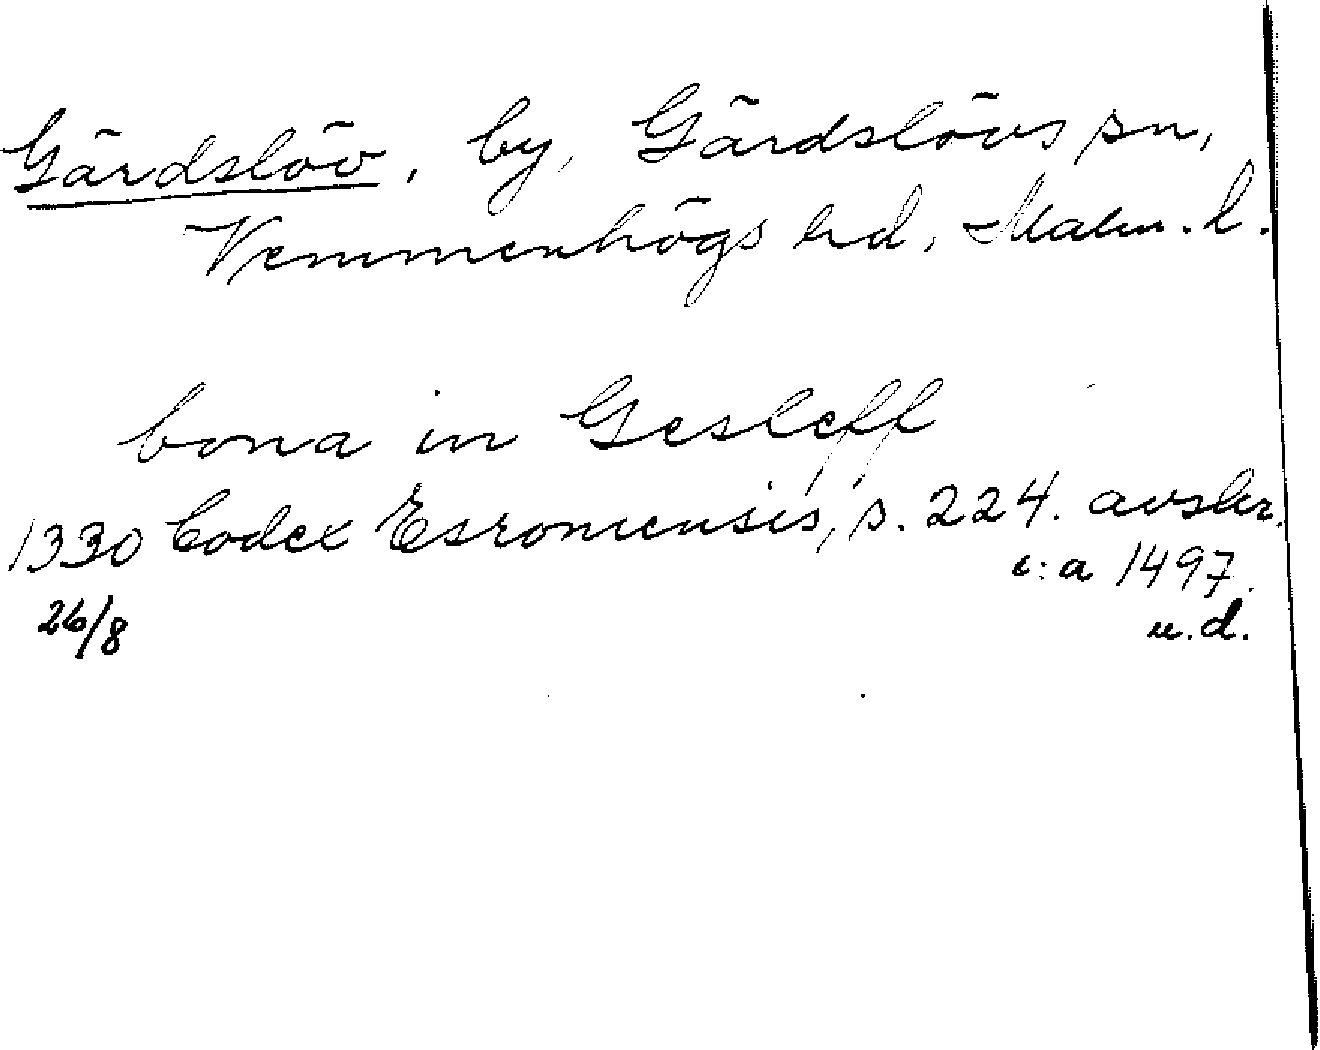 Gärdslöv, by, Gärdslövs sn,
Vemmenhögs hd, Malm. l.
bona in Gesleff
1330 Codex Esromensis, s. 224. avskr.
26/8 c:a 1497.
u.d.